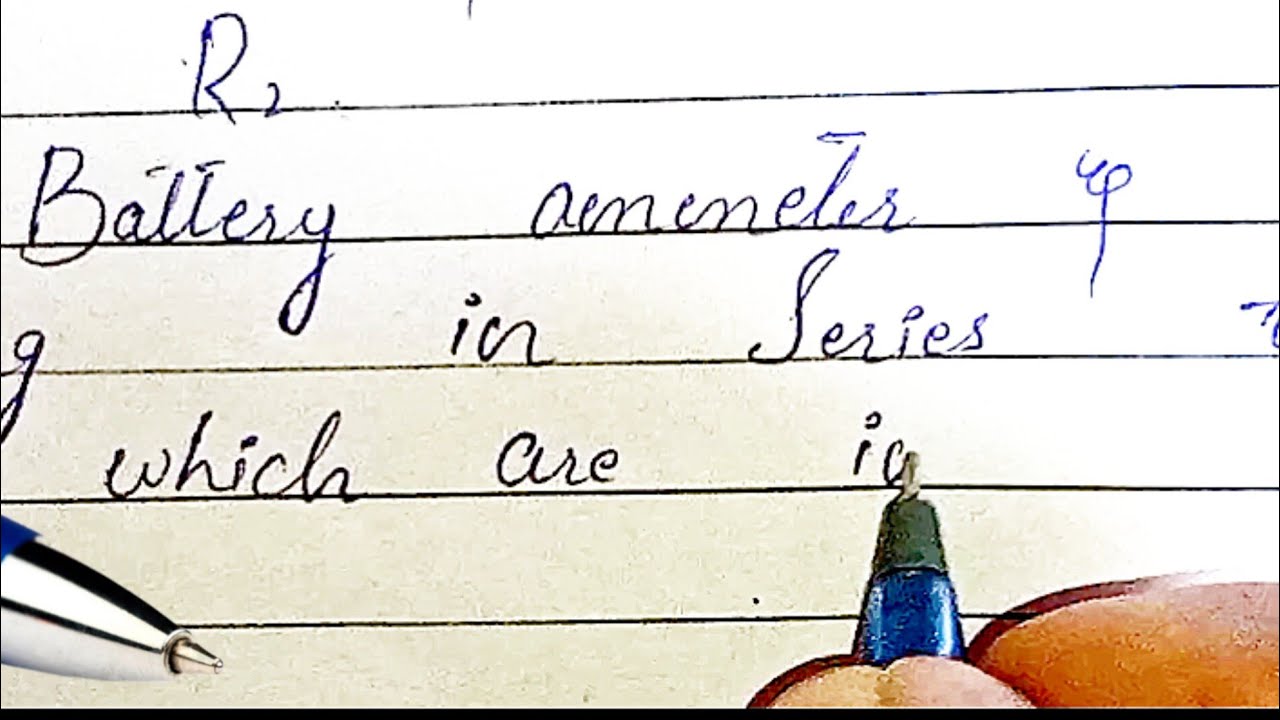 R2
Battery ammeter &
g in Series
which are in